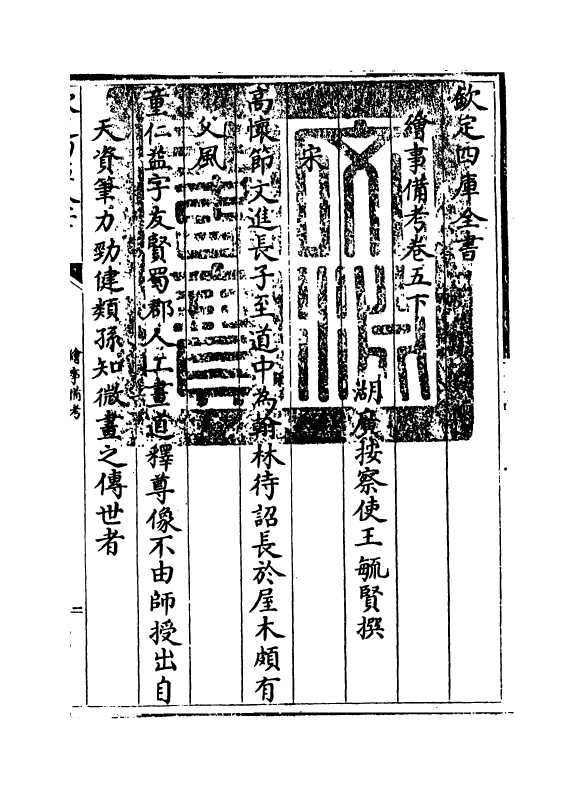 欽定四庫全書
繪事備考卷五下
湖廣按察使王毓賢撰
宋
高懷節文進長子至道中為翰林待詔長於屋木頗有
父風
童仁益字友賢蜀郡人工畫道釋尊像不由師授出自
天資筆力勁健類孫知微畫之傳世者
繪事備考